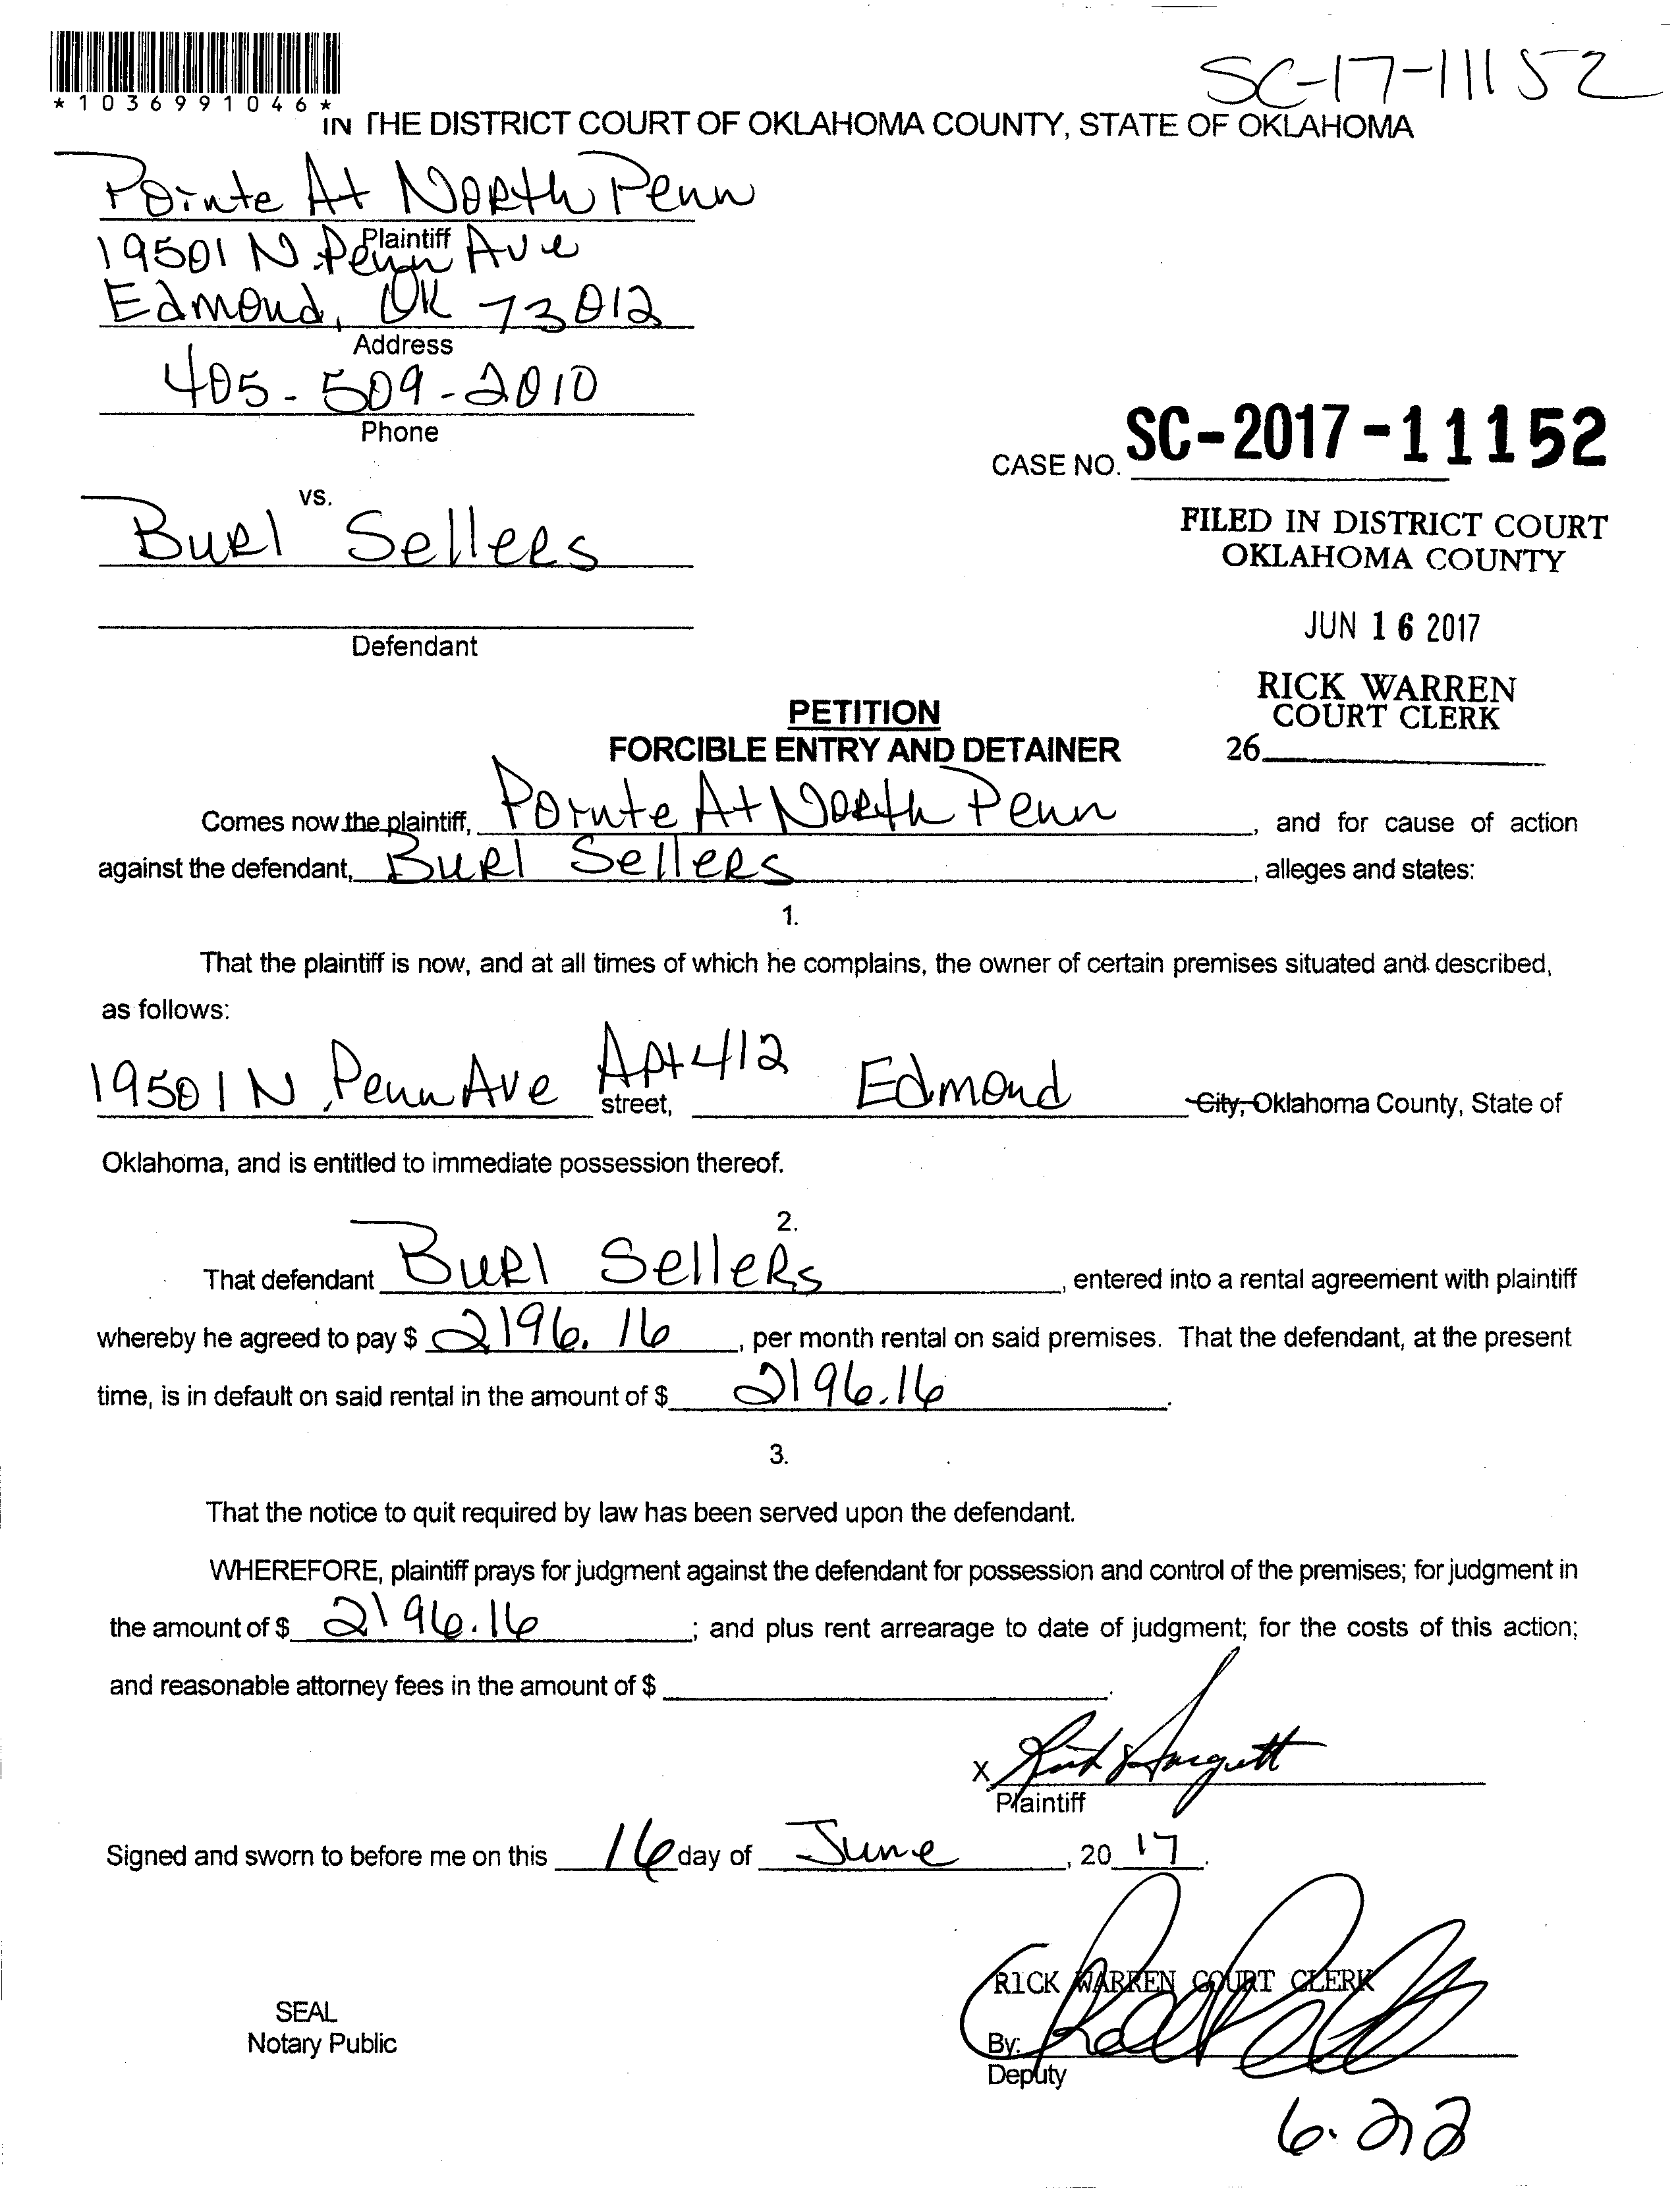 SC-17-11152
*1036991046*
IN THE DISTRICT COURT OF OKLAHOMA COUNTY, STATE OF OKLAHOMA
Pointe At North Penn
Plaintiff
19501 N. Penn Ave
Edmond, OK 73012
Address
405-509-2010
Phone
CASE NO. SC-2017-11152
vs.
Burl Sellers
FILED IN DISTRICT COURT
OKLAHOMA COUNTY
Defendant
JUN 16 2017
RICK WARREN
COURT CLERK
26
PETITION
FORCIBLE ENTRY AND DETAINER
Comes now the plaintiff, Pointe At North Penn, and for cause of action
against the defendant, Burl Sellers, alleges and states:
1.
That the plaintiff is now, and at all times of which he complains, the owner of certain premises situated and described,
as follows:
19501 N. Penn Ave Apt 412 street, Edmond City, Oklahoma County, State of
Oklahoma, and is entitled to immediate possession thereof.
2.
That defendant Burl Sellers, entered into a rental agreement with plaintiff
whereby he agreed to pay $ 2196.16, per month rental on said premises. That the defendant, at the present
time, is in default on said rental in the amount of $ 2196.16.
3.
That the notice to quit required by law has been served upon the defendant.
WHEREFORE, plaintiff prays for judgment against the defendant for possession and control of the premises; for judgment in
the amount of $ 2196.16; and plus rent arrearage to date of judgment; for the costs of this action;
and reasonable attorney fees in the amount of $
X
Plaintiff
Signed and sworn to before me on this 16 day of June, 2017.
RICK WARREN COURT CLERK
SEAL
Notary Public
By:
Deputy
6.22